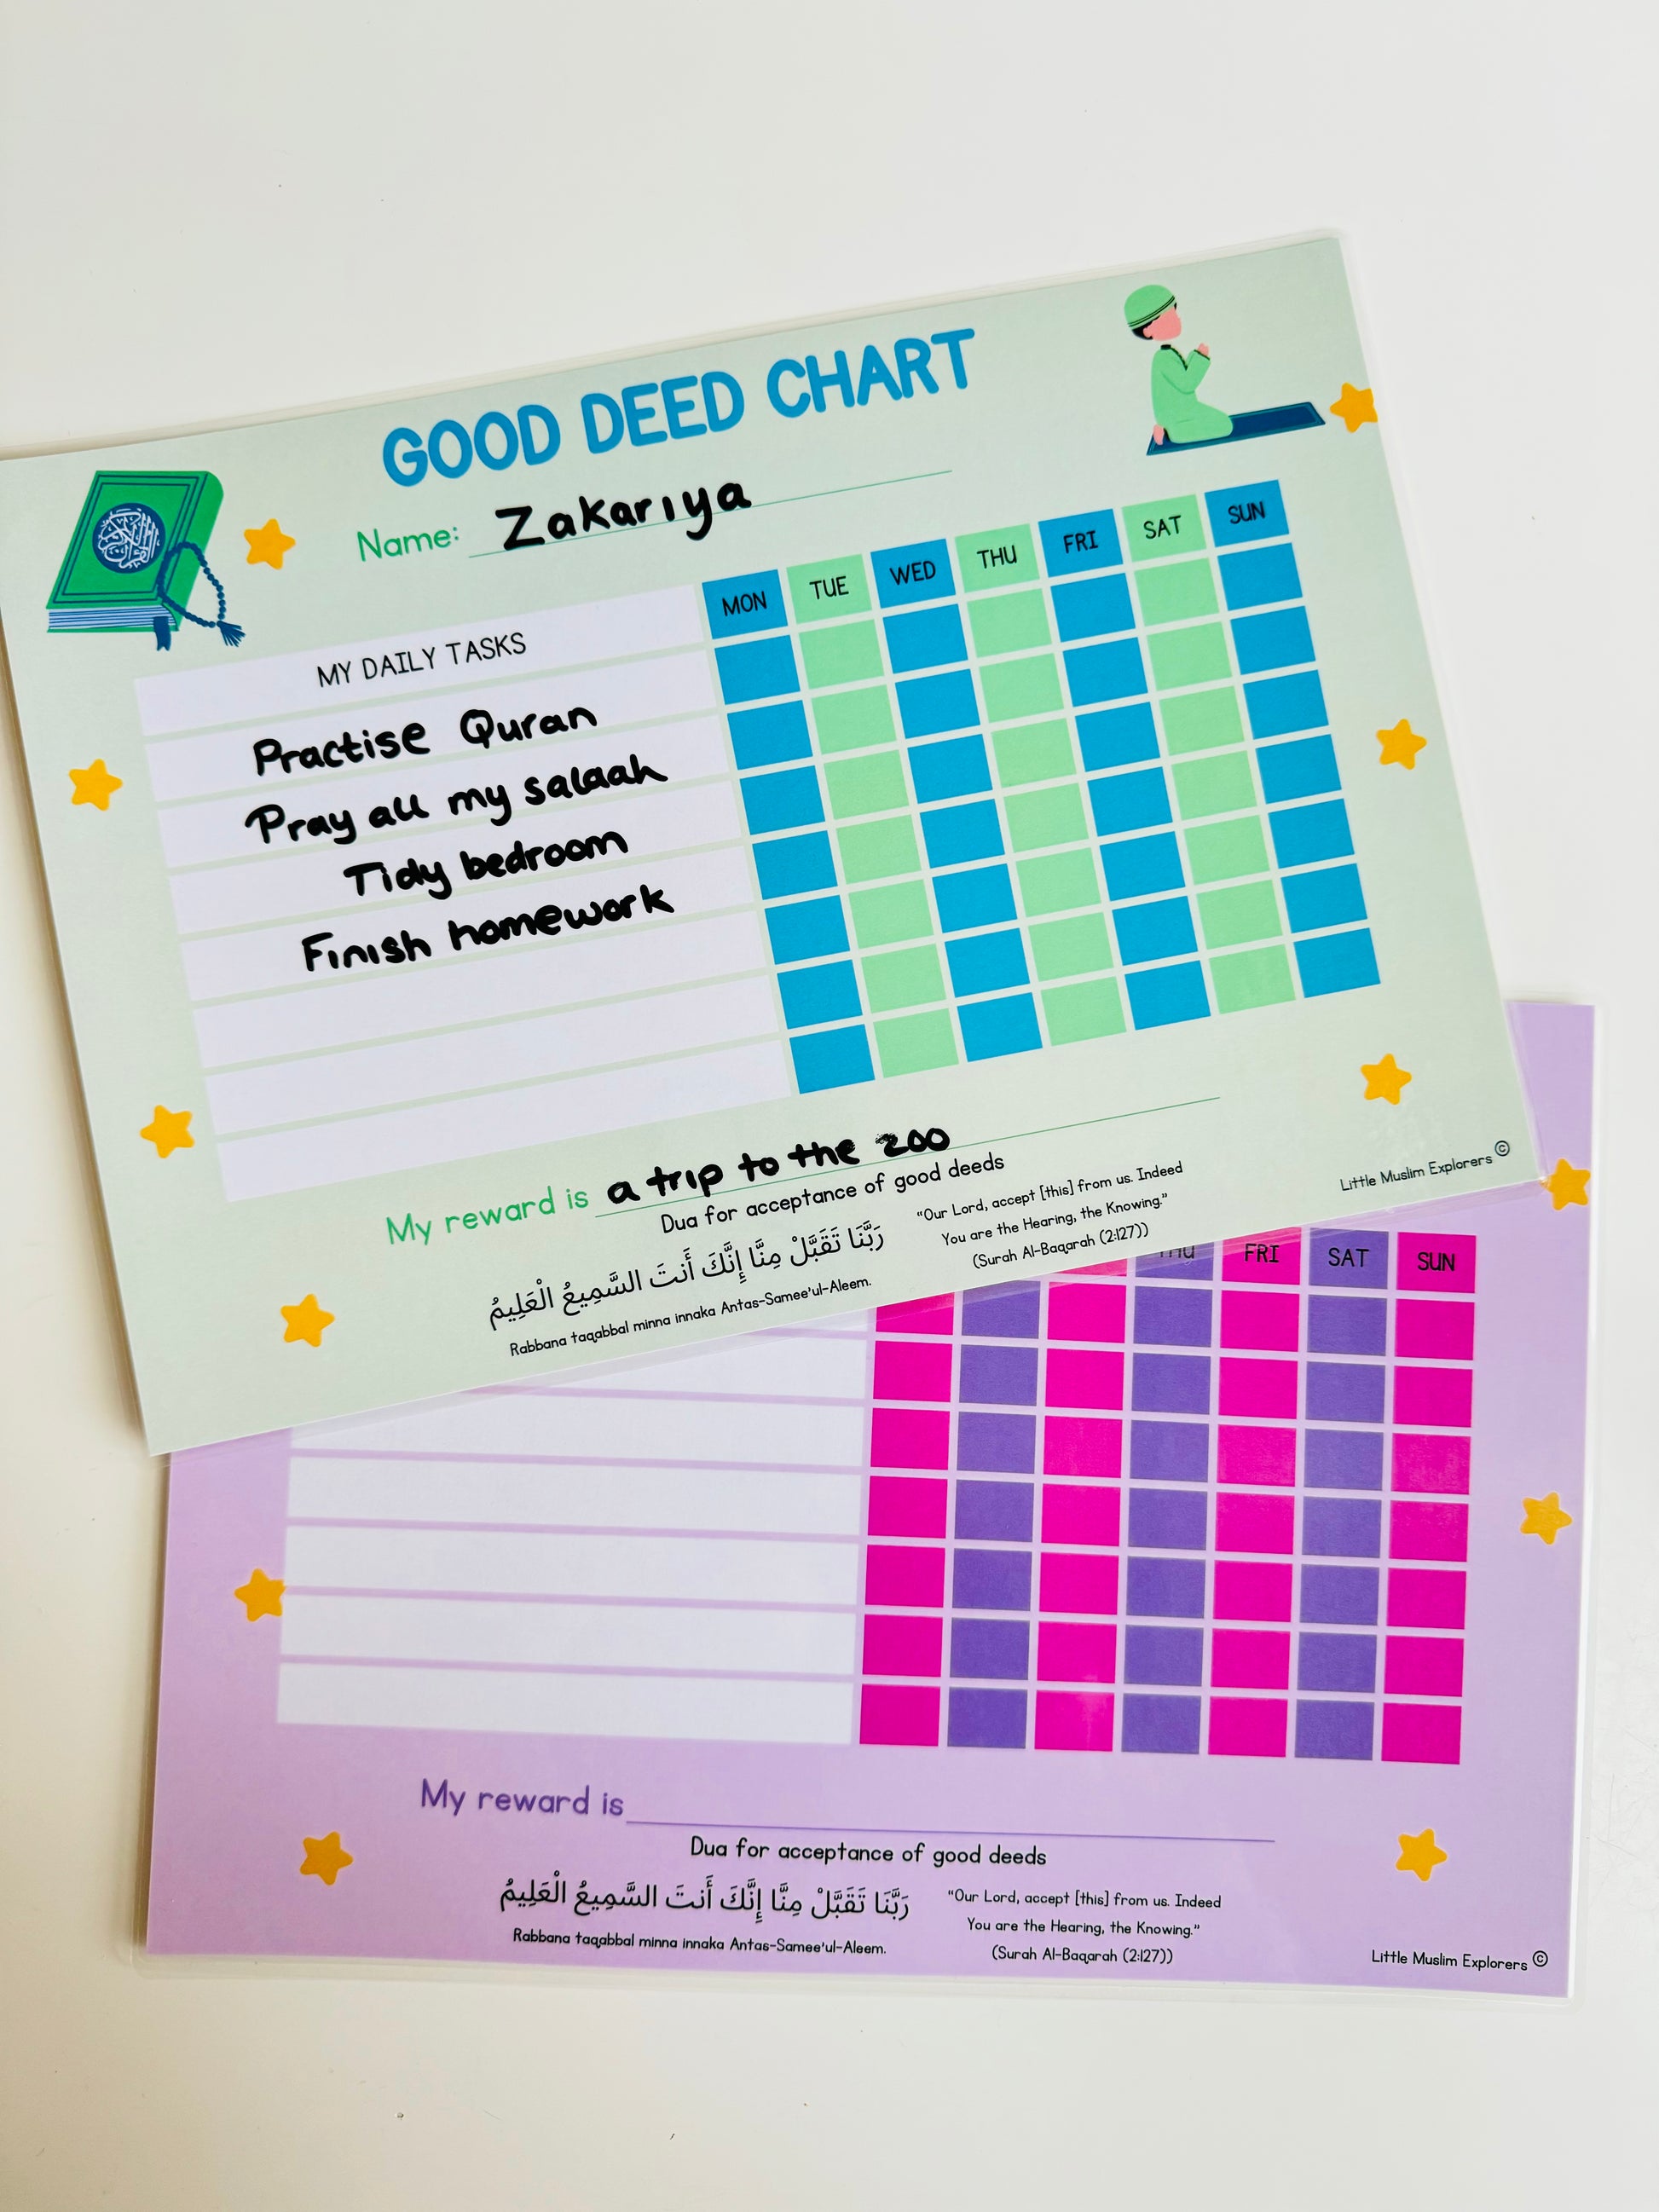 GOOD DEED CHART
Name: Zakariya
MY DAILY TASKS MON TUE WED THU FRI SAT SUN
Practise Quran
Pray all my salaah
Tidy bedroom
Finish homework
My reward is a trip to the zoo
Dua for acceptance of good deeds
رَبَّنَا تَقَبَّلْ مِنَّا إِنَّكَ أَنتَ السَّمِيعُ الْعَلِيمُ
Rabbana taqabbal minna innaka Antas-Samee'ul-Aleem.
"Our Lord, accept [this] from us. Indeed
You are the Hearing, the Knowing."
(Surah Al-Baqarah (2:127))
Little Muslim Explorers ©
FRI SAT SUN
My reward is
Dua for acceptance of good deeds
رَبَّنَا تَقَبَّلْ مِنَّا إِنَّكَ أَنتَ السَّمِيعُ الْعَلِيمُ
Rabbana taqabbal minna innaka Antas-Samee'ul-Aleem.
"Our Lord, accept [this] from us. Indeed
You are the Hearing, the Knowing."
(Surah Al-Baqarah (2:127))
Little Muslim Explorers ©